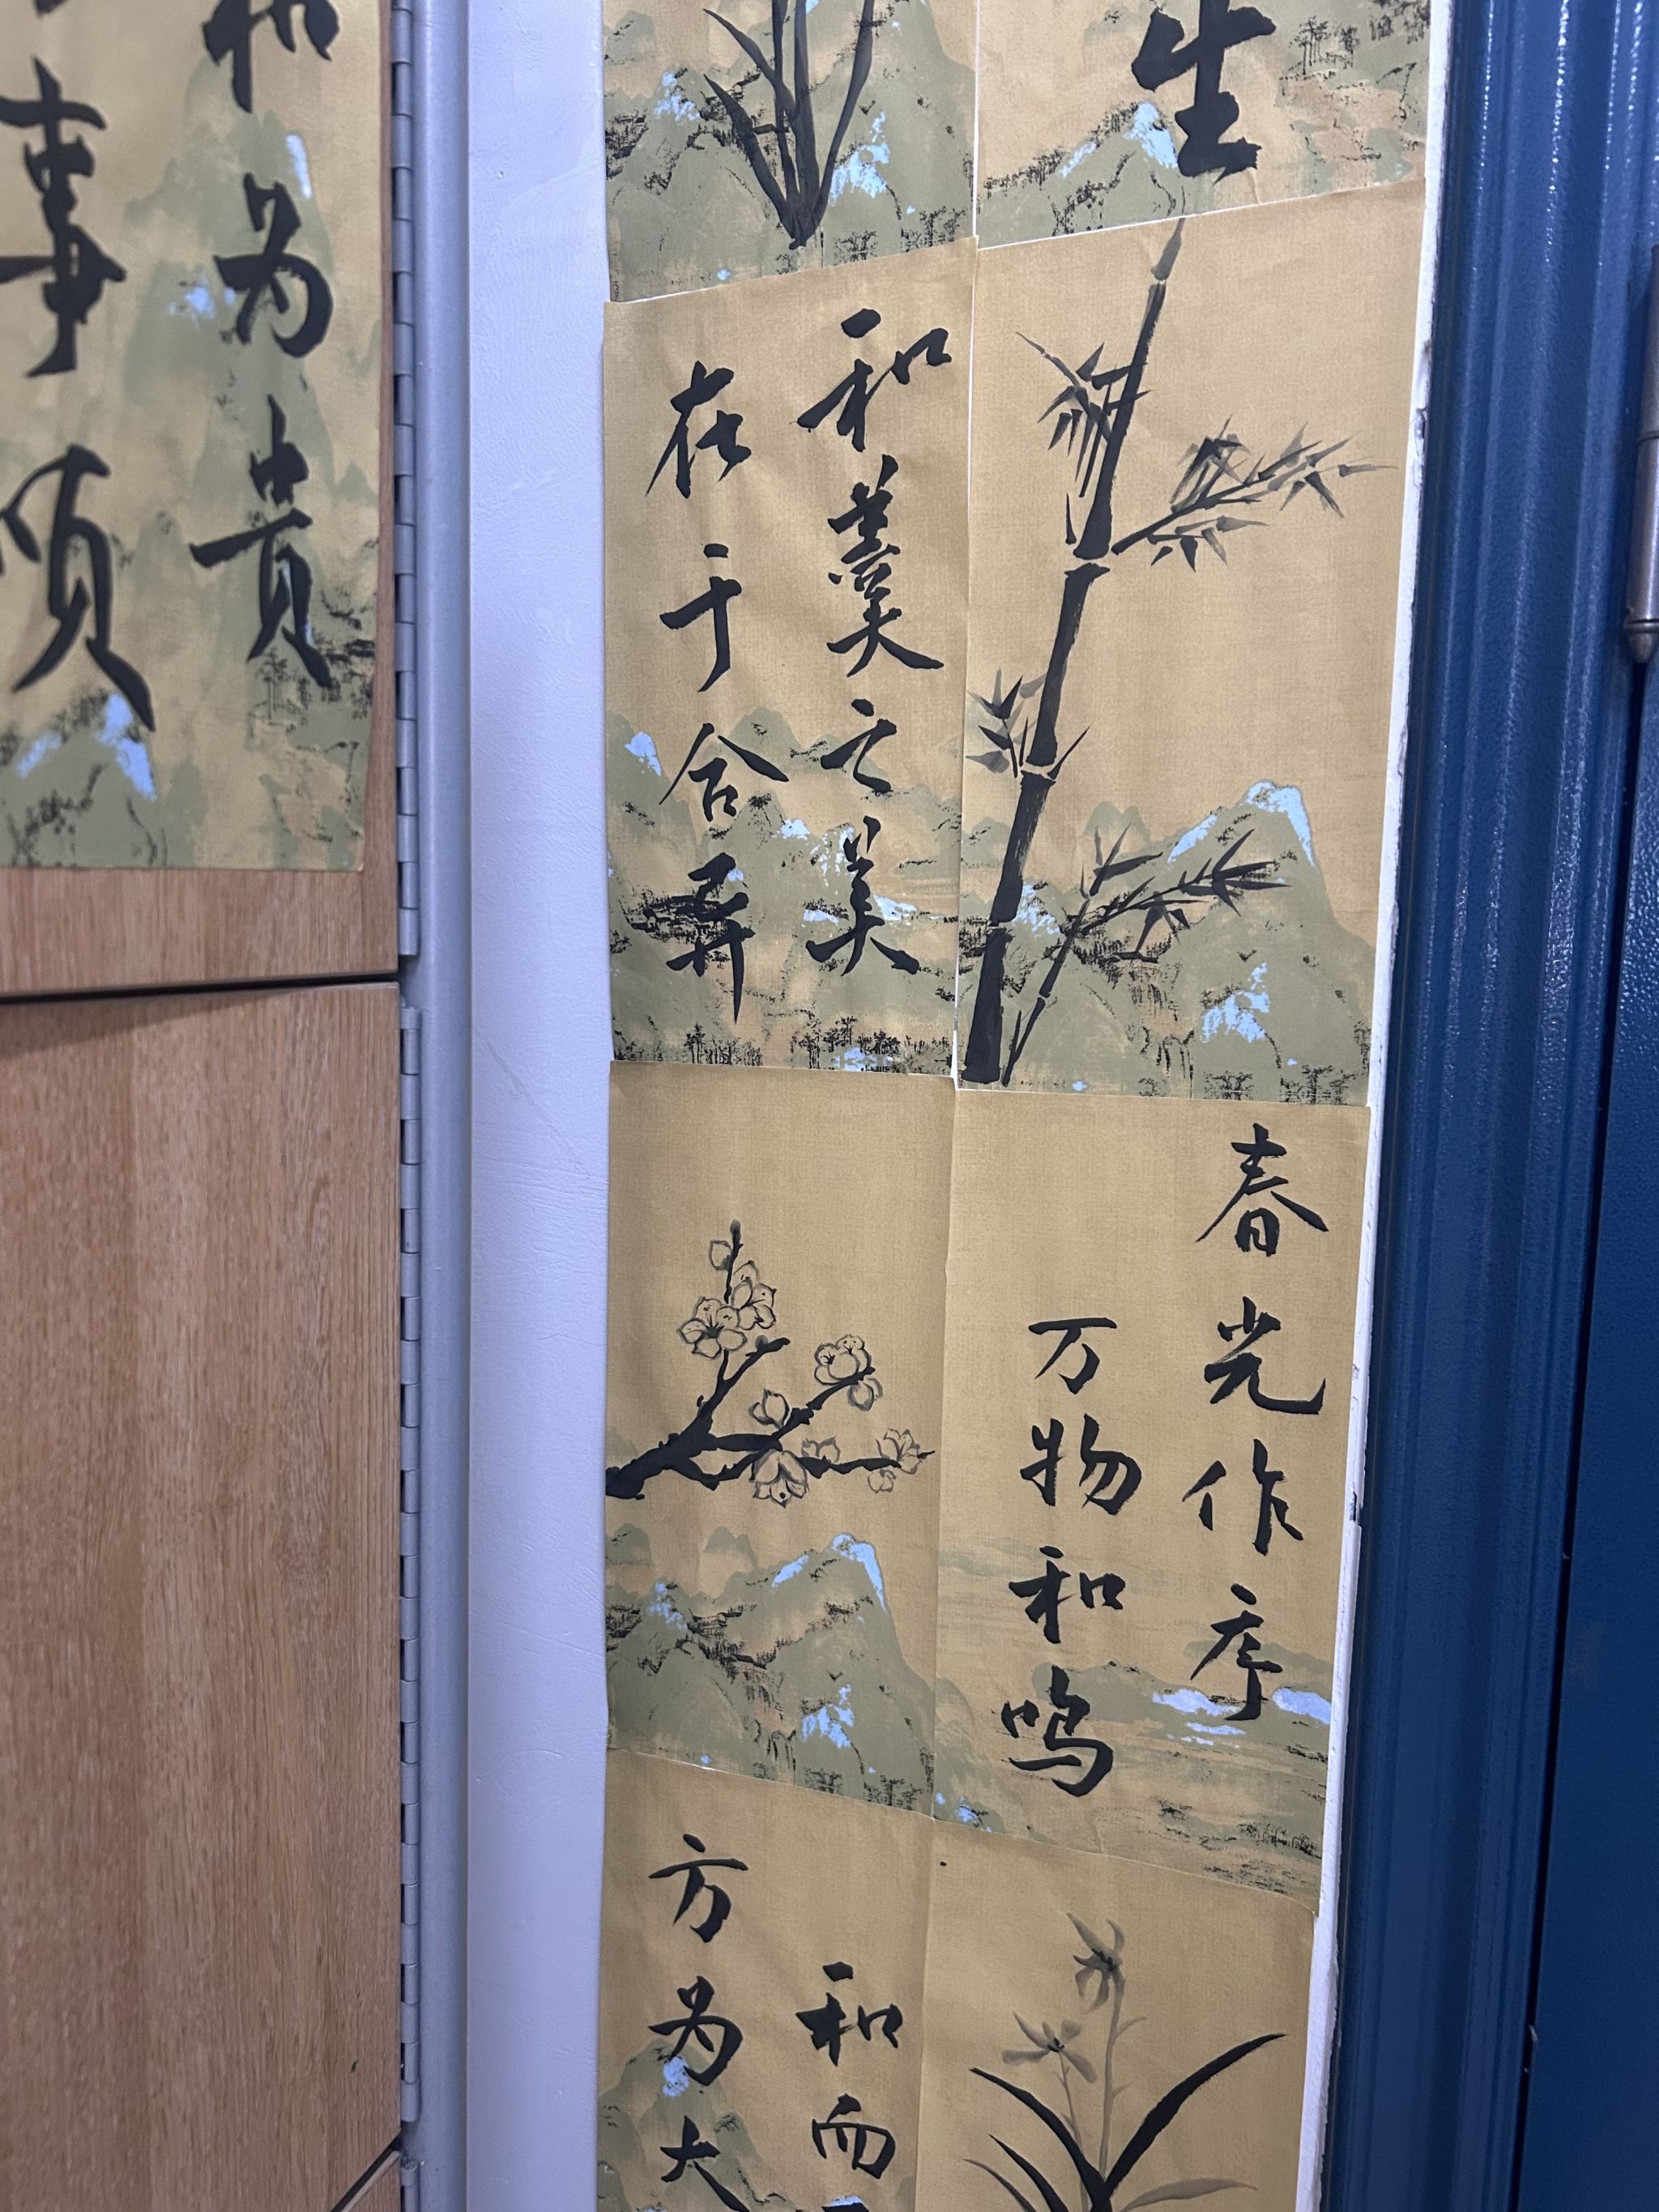 和为贵
事顺
生
和羹之美
在于合异
春光作序
万物和鸣
和而
方为大